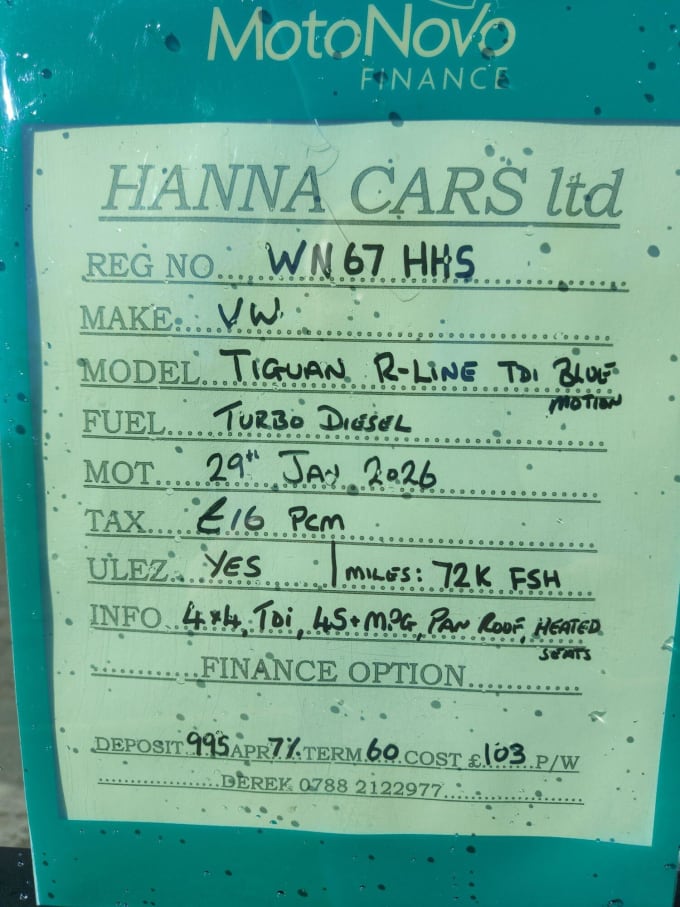 MotoNovo
FINANCE
HANNA CARS ltd
REG NO WN67 HHS
MAKE VW
MODEL TIGUAN R-LINE TDI BLUE
MOTION
FUEL TURBO DIESEL
MOT 29th JAN 2026
TAX £16 PCM
ULEZ YES | MILES: 72K FSH
INFO 4x4, TDI, 45+MPG, PAN ROOF, HEATED
SEATS
FINANCE OPTION
DEPOSIT 995 APR 7% TERM 60 COST £103 P/W
DEREK 0788 2122977